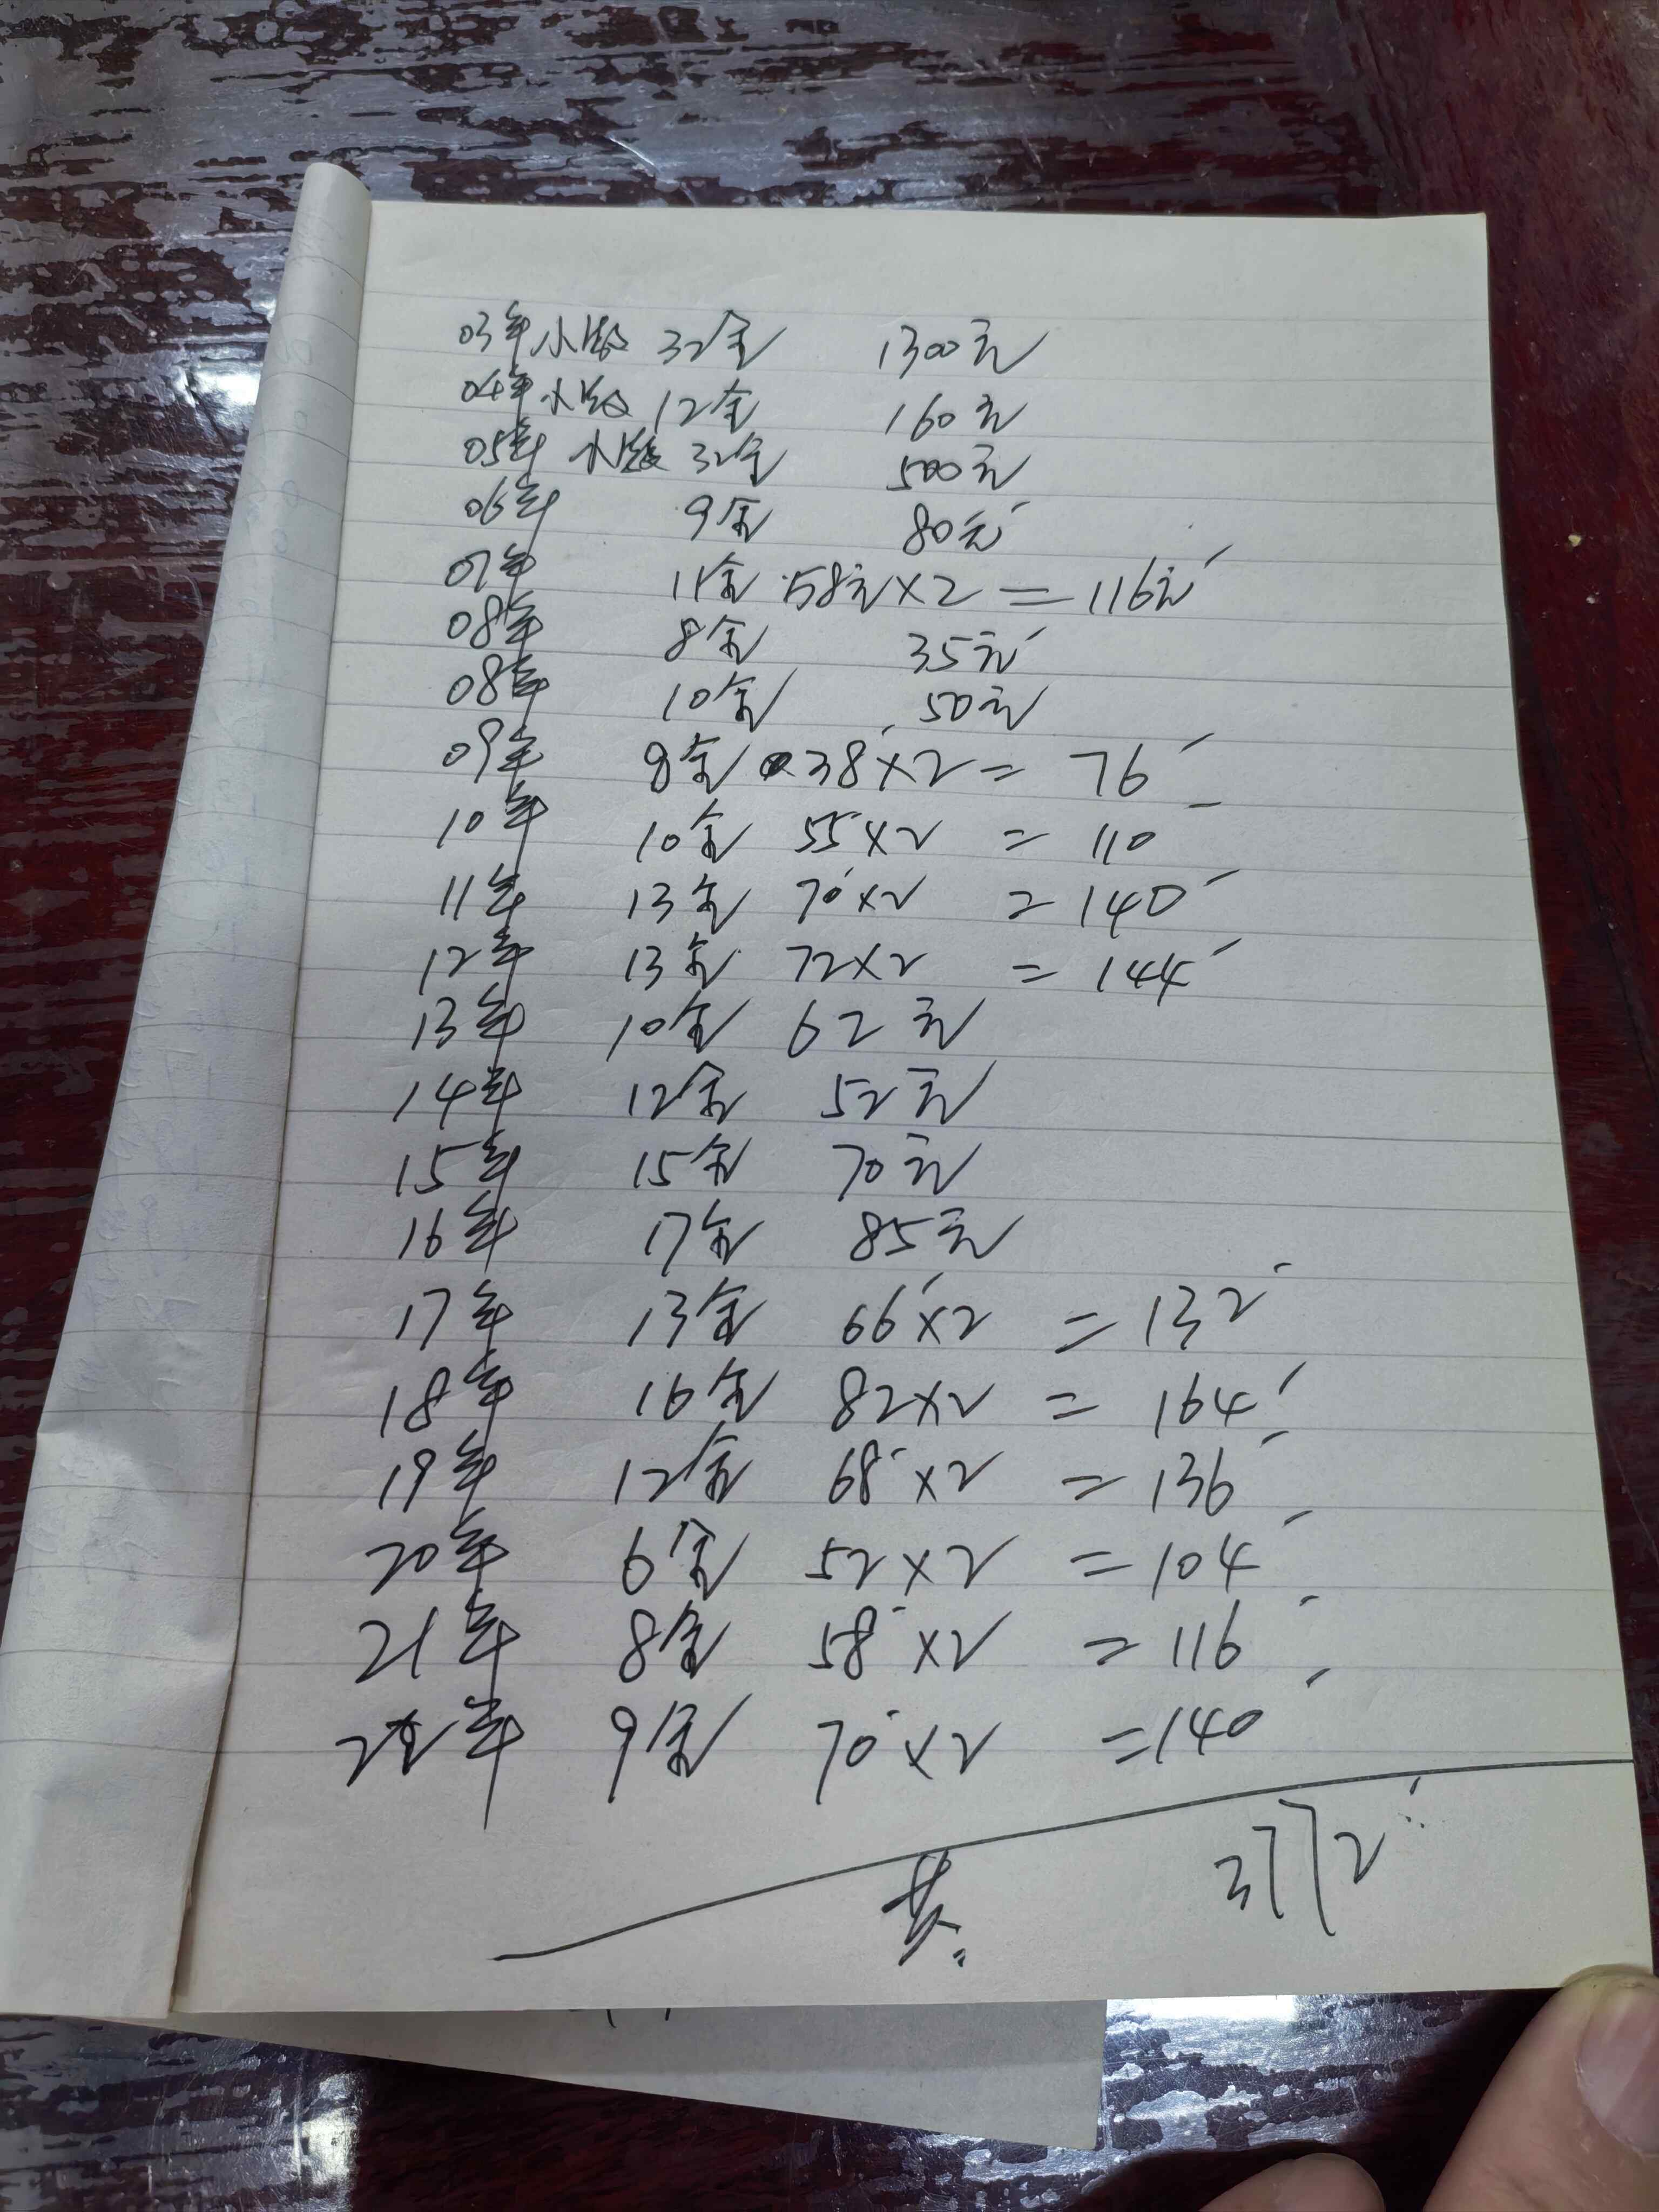 03年小版 32全 1300元
04年小版 12全 160元
05年 小版 32全 500元
06年 9全 80元
07年 11全 58元×2=116元
08年 8全 35元
08年 10全 50元
09年 8全 38×2=76
10年 10全 55×2=110
11年 13全 70×2=140
12年 13全 72×2=144
13年 10全 62元
14年 12全 52元
15年 15全 70元
16年 17全 85元
17年 13全 66×2=132
18年 16全 82×2=164
19年 12全 68×2=136
20年 6全 52×2=104
21年 8全 58×2=116
22年 9全 70×2=140
共: 3772